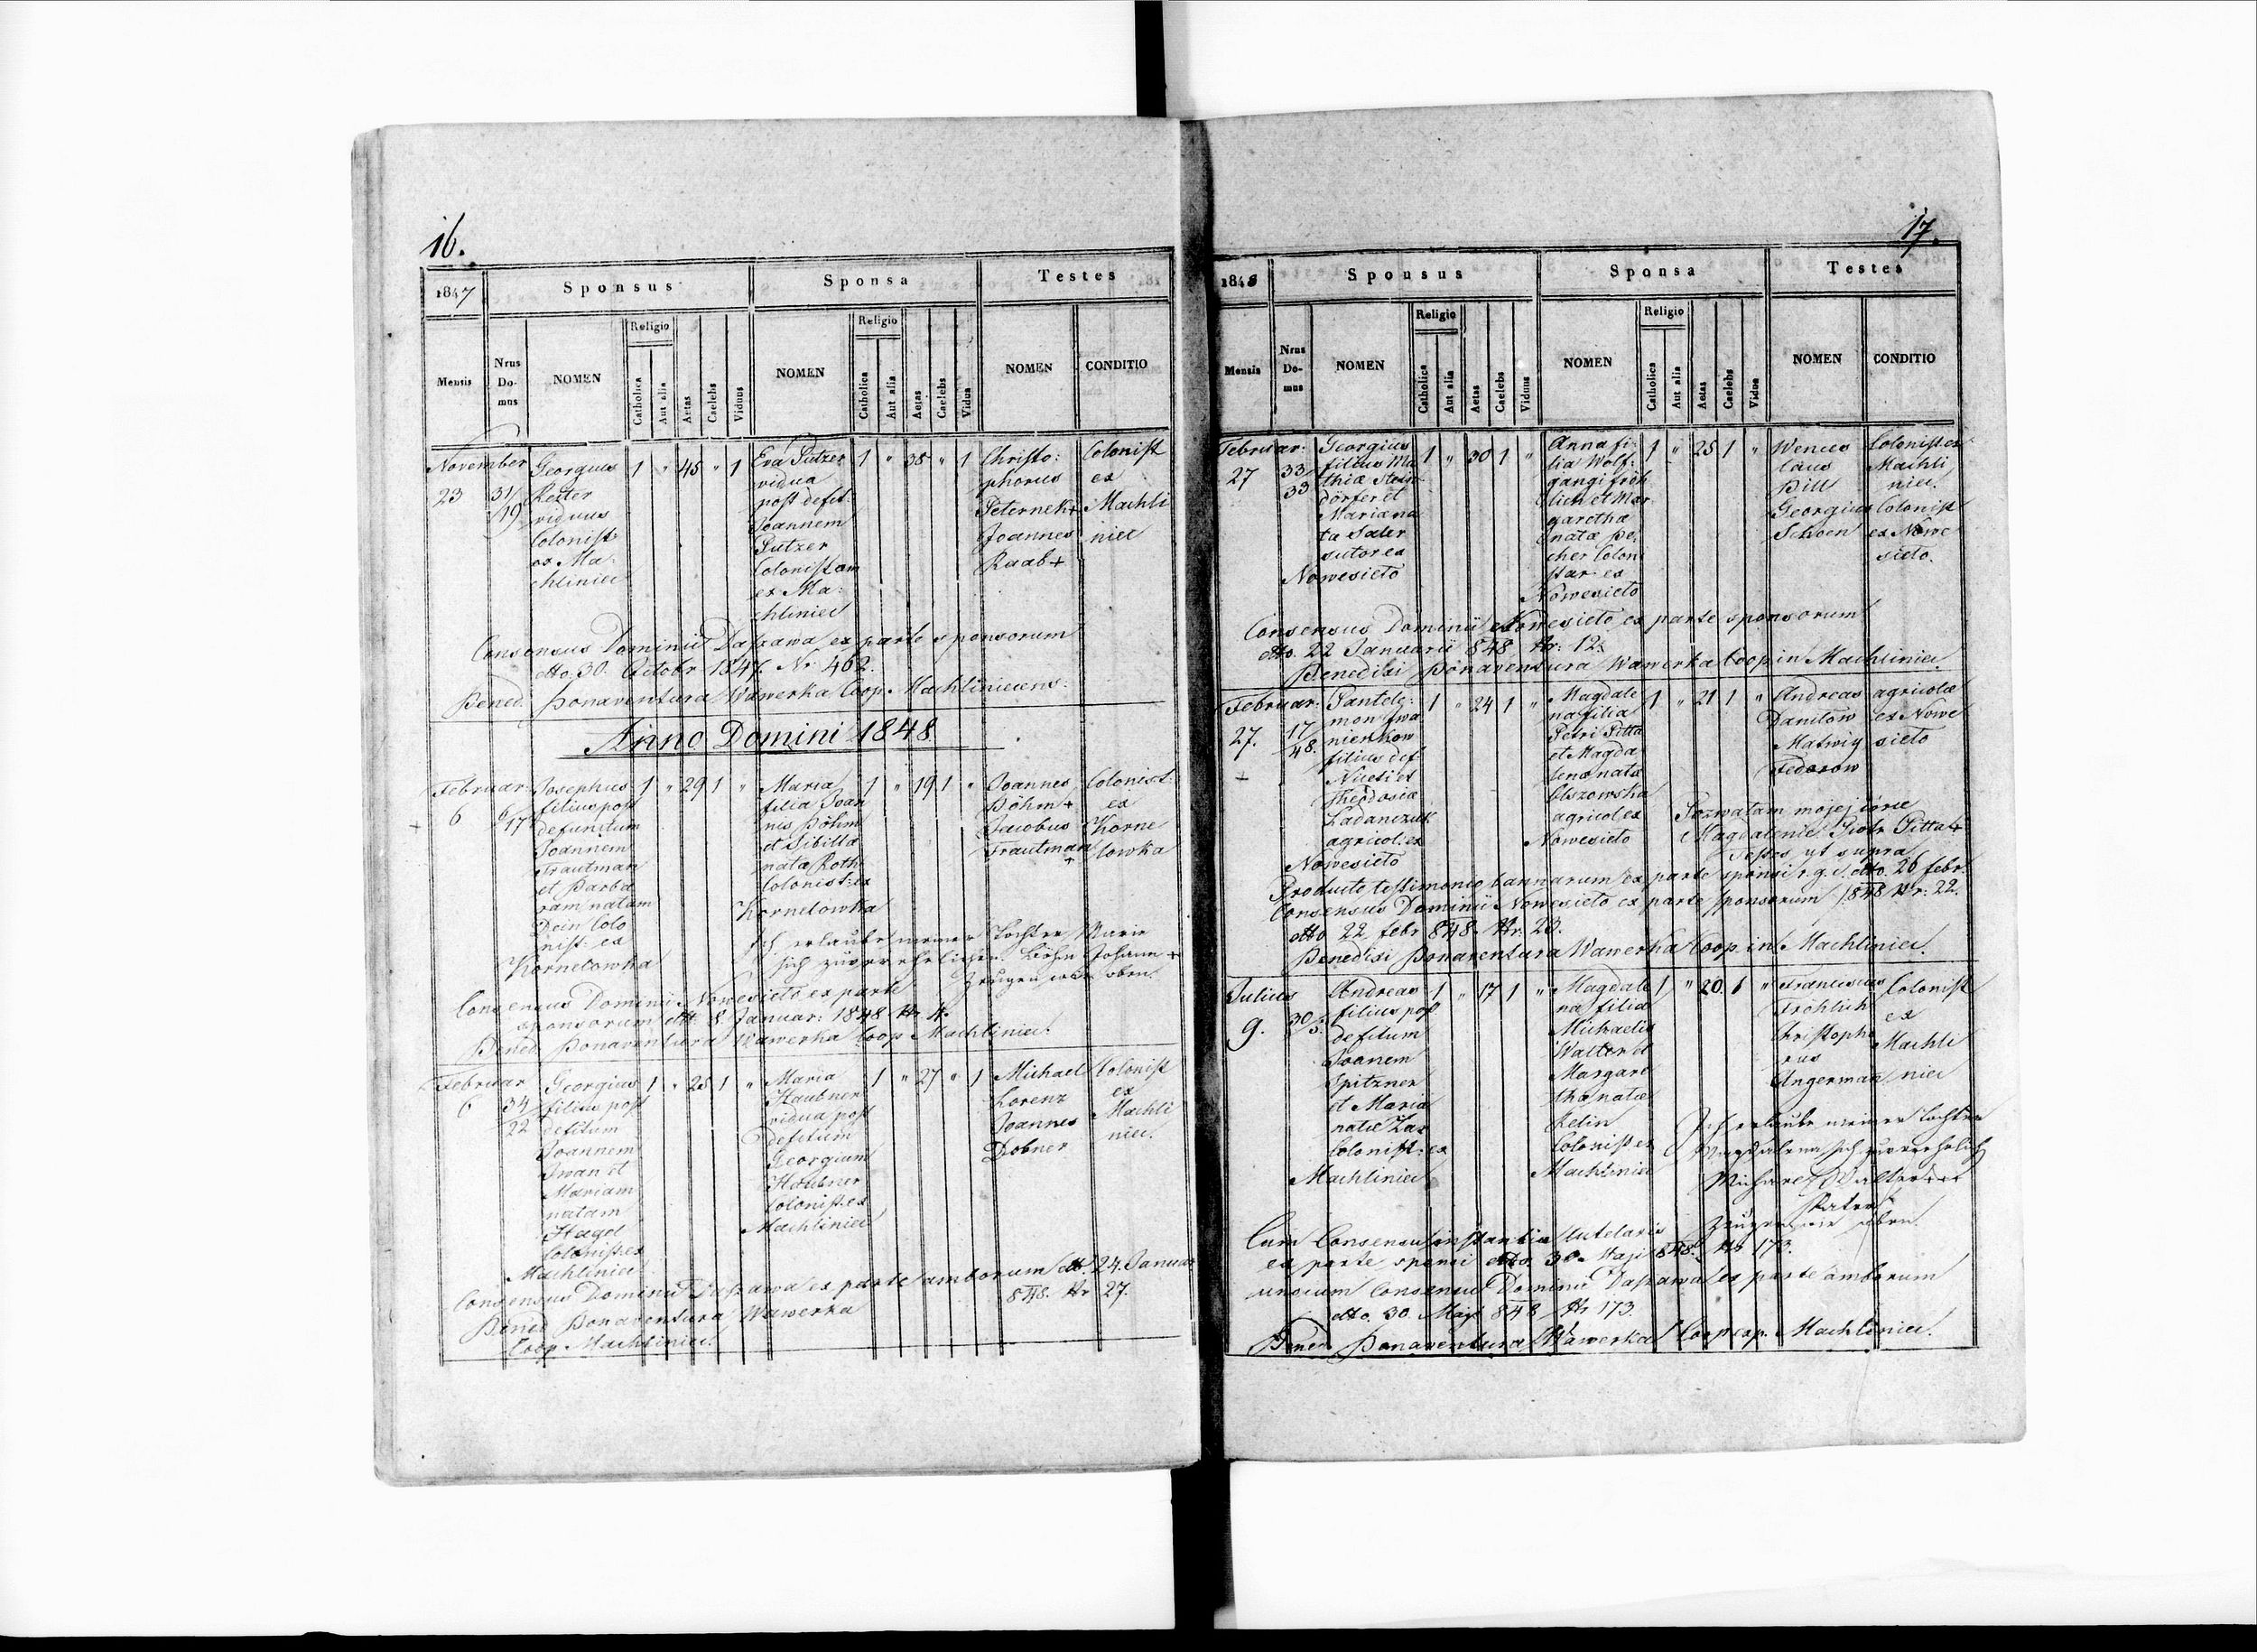 16.
1847
Sponsus
Sponsa
Testes
Mensis
Nrus Do- mus
NOMEN
Religio
Catholica
Aut alia
Aetas
Caelebs
Viduus
NOMEN
Religio
Catholica
Aut alia
Aetas
Caelebs
Vidua
NOMEN
CONDITIO
November
23
31/19
Georgius
Reiter
viduus
Colonist:
ex Ma:
chliniec
1 " 45 " 1
Eva Putzer
vidua
post defct:
Joannem
Putzer
Colonistam
ex Ma:
chliniec
1 " 38 " 1
Christo:
phorus
Peternek +
Joannes
Raab +
Colonist
ex
Machli
niec
Consensus Dominii Daszawa ex parte sponsorum
dtto 30. Octobr 1847. Nr. 462.
Bened: Bonaventura Wawerka Coop. Machliniecens:
Anno Domini 1848
Februar:
6
6/17
Josephus
filius post
defunctum
Joannem
Trautman
et Barba
ram natam
Dein Colo
nist: ex
Kornelowka
1 " 29 1 "
Maria
filia Joan
nis Böhm
et Sibilla
nata Roth
Colonist: ex
Kornelowka
1 " 19 1 "
Joannes
Böhm +
Jacobus
Trautman
+
Colonist
ex
Korne
lowka
Ich erlaube meiner Tochter Marie
sich zuverehelichen. Böhm Johann +
Zeugen wie oben.
Consensus Dominii Nowesioło ex parte
sponsorum dtt. 8. Januar: 1848 Nr. 4.
Bened. Bonaventura Wawerka Coop Machliniec.
Februar
6
34/22
Georgius
filius post
defctum
Joannem
Iwan et
Mariam
natam
Hagel
Colonist ex
Machliniec
1 " 25 1 "
Maria
Haubner
vidua post
defctum
Georgium
Haubner
Colonist. ex
Machliniec
1 " 27 " 1
Michael
Lorenz
Joannes
Dobner
Colonist
ex
Machli
niec.
Consensus Dominii Daszawa ex parte amborum dtt. 24. Januar
848. Nr 27.
Bened Bonaventura Wawerka
Coop Machliniec.
17.
1848
Sponsus
Sponsa
Testes
Mensis
Nrus Do- mus
NOMEN
Religio
Catholica
Aut alia
Aetas
Caelebs
Viduus
NOMEN
Religio
Catholica
Aut alia
Aetas
Caelebs
Vidua
NOMEN
CONDITIO
Februar:
27
33/33
Georgius
filius Ma
thiæ Stein
dörfer et
Maria na
ta Saler
sutor ex
Nowesioło
1 " 30 1 "
Anna fi:
lia Wolf:
gangi Fröh
lich et Mar
garetha
natæ Pe:
cher Colon
star ex
Nowesioło
1 " 25 1 "
Wences
laus
Bill
Georgius
Schoen
Colonist ex
Machli
niec.
Colonist
ex Nowe
sioło.
Consensus Dominii Nowesioło ex parte sponsorum
dtto. 22 Januarii 848. Nr: 12.
Benedikt Bonaventura Wawerka Coop in Machliniec.
Februar:
27.
17/48.
Pantele:
mon Iwa
nienkow
filius def:
Nicetii et
Theodosiæ
Ladanczuk
agricol: ex
Nowesioło
1 " 24 1 "
Magdale
na filia
Petri Pitta
et Magda
lena nata
Olszowska
agricol ex
Nowesioło
1 " 21 1 "
Andreas
Daniłow
Matwiy
Fedorow
agricolæ
ex Nowe
sioło
Pozwalam mojej córce
Magdalenie Piotr Pitta +
Testes ut supra
Producto testimonio bannorum ex parte sponsi r. g. c. dtto. 26 febr.
Consensus Dominii Nowesioło ex parte sponsorum 1848 Nr: 22.
dtto 22 febr 848. Nr. 23.
Benedikt Bonaventura Wawerka Coop. in Machliniec.
Julius
9.
30/5.
Andreas
filius post
defctum
Joanem
Spitzner
et Maria
natæ Lax
Colonist: ex
Machliniec
1 " 17 1 "
Magdale
na filia
Michaelis
Walter et
Margare
tha natæ
Relin
Colonist ex
Machliniec
1 " 20. 1 "
Franciscus
Fröhlich
Christopho
rus
Angerman
Colonist
ex
Machli
niec
Ich erlaube meiner Tochter
Magdalena sich zuverehelich
Michael Walter +++
Vater
Zeugen wie oben.
Cum Consensu instantiæ tutelaris
ex parte sponsi dtto. 30. Maji 848. Nr 173.
Consensu Dominii Daszawa ex parte amborum
dtto. 30. Maji 848 Nr 173.
Bened Bonaventura Wawerka Coop exp. Machliniec.